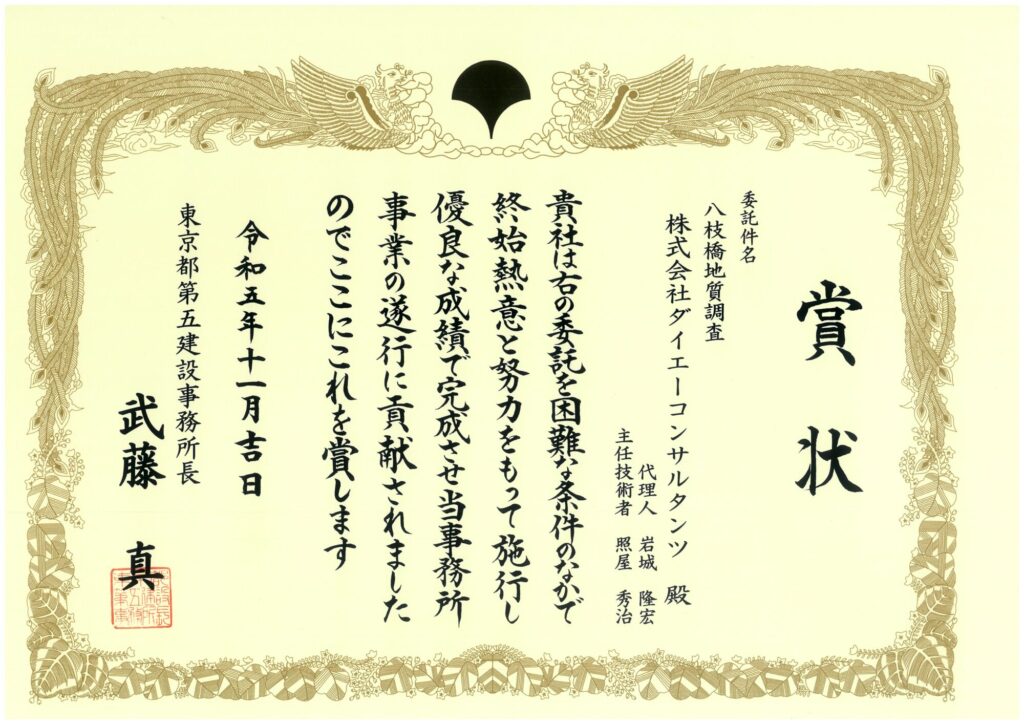 賞状
委託件名
八枝橋地質調査
株式会社ダイエーコンサルタンツ 殿
代理人 岩城 隆宏
主任技術者 照屋 秀治
貴社は右の委託を困難な条件のなかで
終始熱意と努力をもって施行し
優良な成績で完成させ当事務所
事業の遂行に貢献されました
のでここにこれを賞します
令和五年十一月吉日
東京都第五建設事務所長
武藤 真